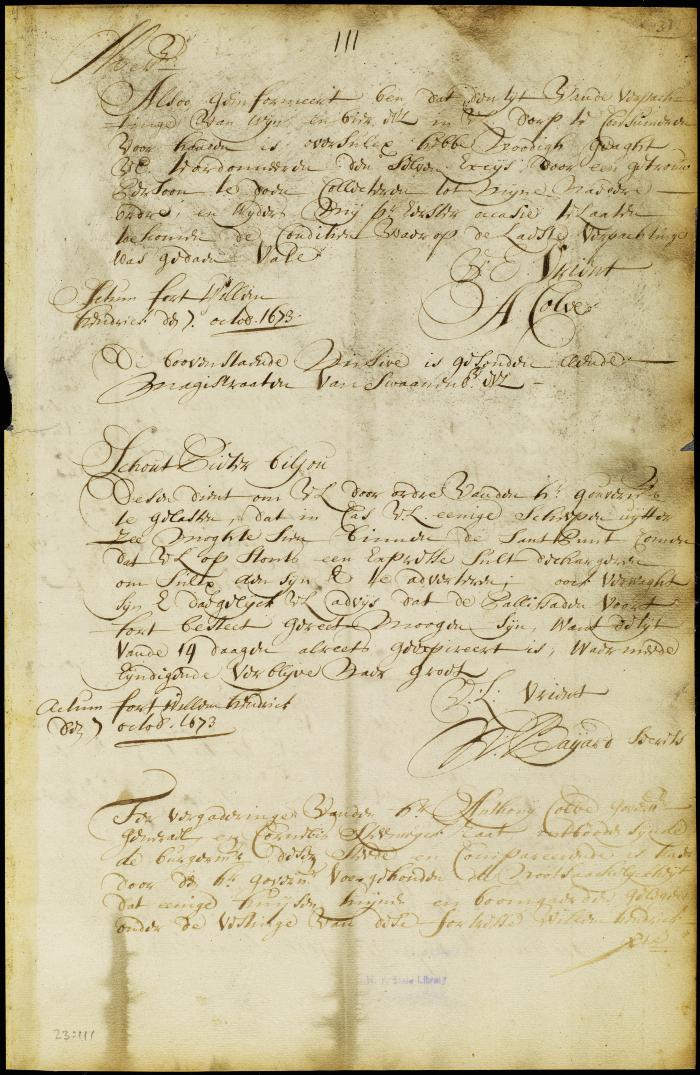 111
31
Alsoo geinformeert ben dat den tyt Vande Verpach
tinge Van Wyn en bier etc in Dorp te Consumeren
Voor handen is, oversulx hebbe Noodigh geaght
VE te ordonneeren den Selven Excys door een getrouw
Persoon te doen Collecteren tot Myne Nadere
ordre, en Wyders My pr. Eerster occasie te Laaten
toekomen de Conditien Waerop de Laeste Verpachtinge
Was gedaen Vale
VE Vrient
A Colve
Actum fort Willem
hendrick den 7. octob. 1673
De bovenstaende Missive is gesonden aende
Magistraaten Van Swaanenb: etc
Schout Pieter biljou
Desen dient om VL door ordre Vanden hr. gouverneur
te gelasten, dat in Cas VL eenige Schepen uytter
Zee Moghte Sien binnen de Sant Punt Comen
dat VL op Stonts een Expresse Sult dechargeren
om Sulx aen Syn E te adverteren; oock Verwaght
Syn E dagelyck VL advys dat de Pallissaden Voort
fort bestelt gereet Moogen Syn, Want de tyt
Vande 14 daagen alreets geexpireert is, Waermede
Eyndigende Verblyve Naer groet
VL Vrient
N. Bayard Secrets
Actum fort Willem hendrick
den 7 octob. 1673
Ter Vergaderinge Vanden hr. Anthony Colve gouvern
Generael en Cornelis Steenwyck raat ontboden synde
de burgemrs deser Stede en Compareerende is haer
door den hr. gouvern Voorgehouden de Nootsaackelyckheyt
dat eenige huysen, tuynen en boomgaerden gelegen
onder de Vestinge Van dese fortresse Willem hendrick
N. Y. State Library
23:111